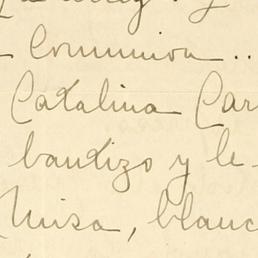 Comunion..
Catalina Car
bautizo y le
Misa, blanc